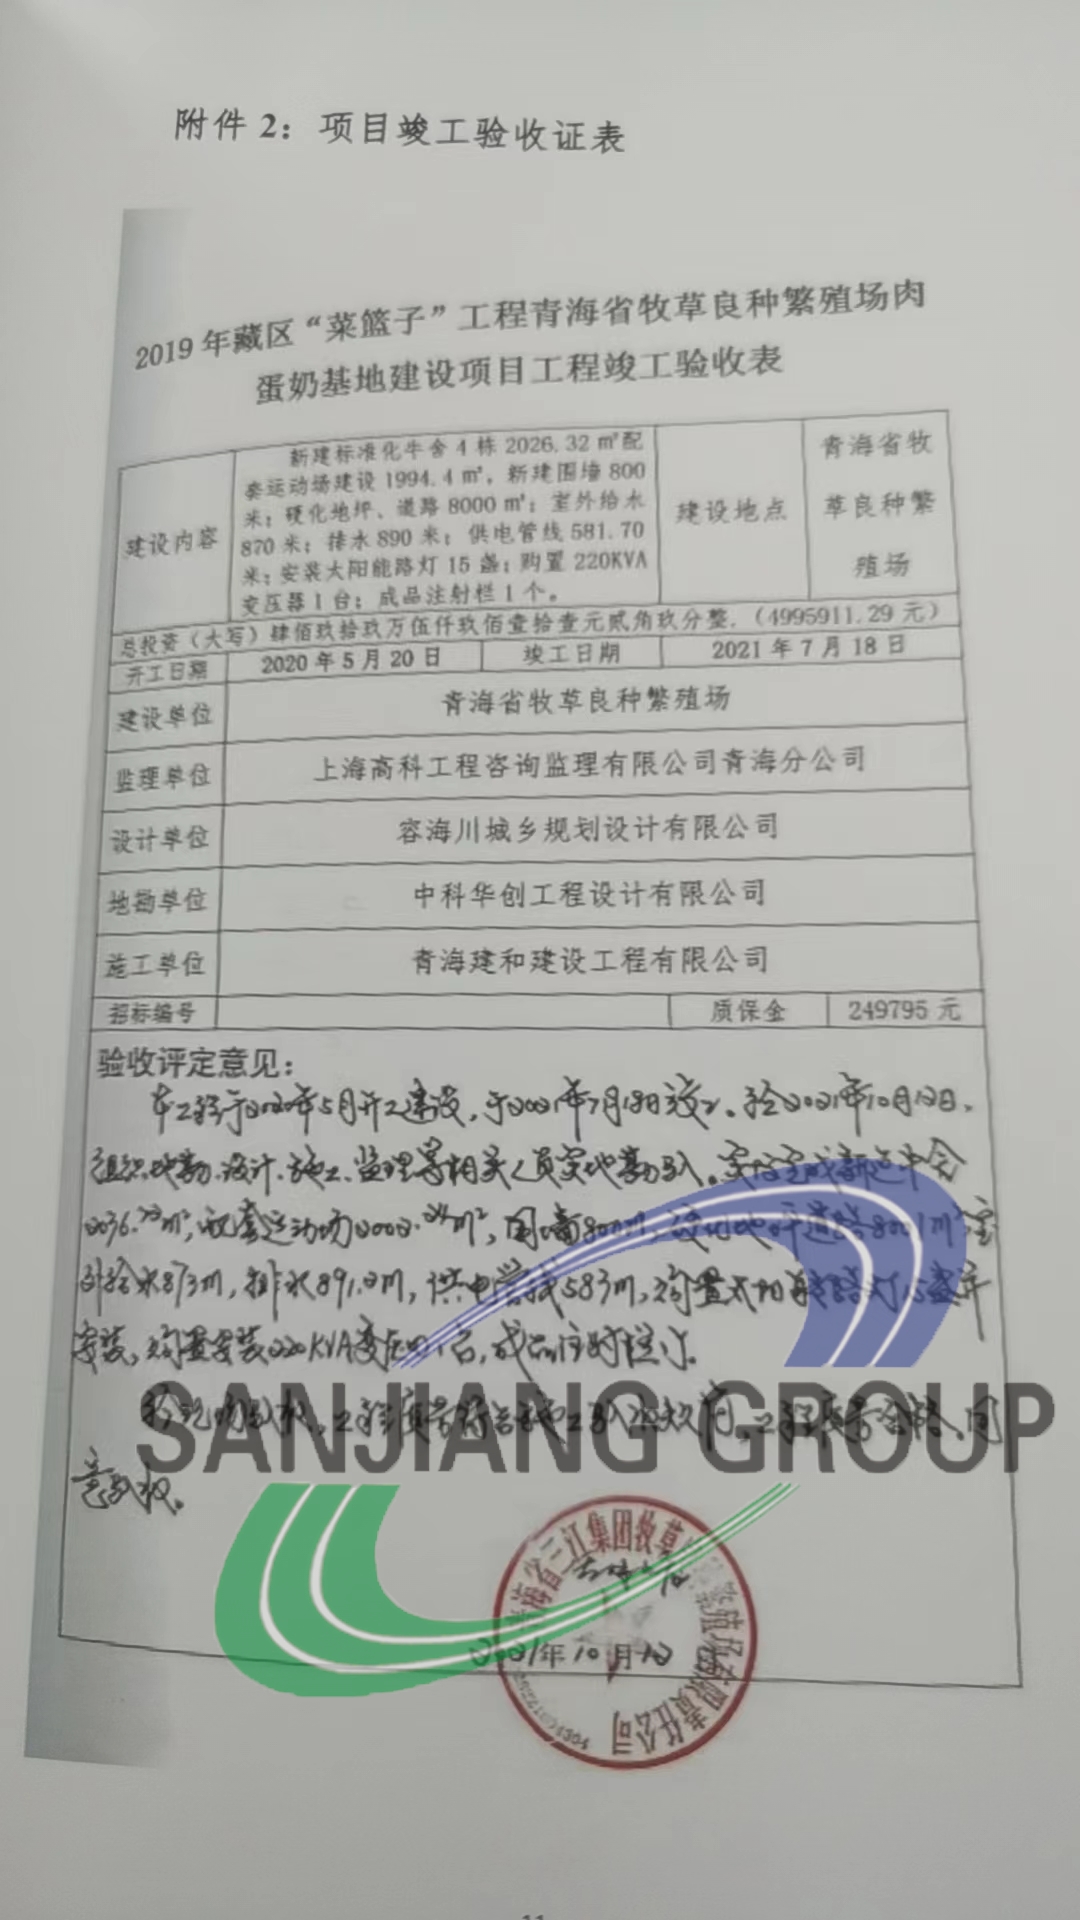 附件 2：项目竣工验收证表
2019 年藏区“菜篮子”工程青海省牧草良种繁殖场肉
蛋奶基地建设项目工程竣工验收表
建设内容
新建标准化牛舍 4 栋 2026.32 ㎡配
套运动场建设 1994.4 ㎡，新建围墙 800
米；硬化地坪、道路 8000 ㎡；室外给水
870 米；排水 890 米；供电管线 581.70
米；安装太阳能路灯 15 盏；购置 220KVA
变压器 1 台；成品注射栏 1 个。
建设地点
青海省牧
草良种繁
殖场
总投资（大写）肆佰玖拾玖万伍仟玖佰壹拾壹元贰角玖分整，（4995911.29 元）
开工日期 2020 年 5 月 20 日 竣工日期 2021 年 7 月 18 日
建设单位 青海省牧草良种繁殖场
监理单位 上海高科工程咨询监理有限公司青海分公司
设计单位 容海川城乡规划设计有限公司
地勘单位 中科华创工程设计有限公司
施工单位 青海建和建设工程有限公司
招标编号 质保金 249795 元
验收评定意见：
本工程于2020年5月开工建设，于2021年7月18日竣工。于2021年10月12日，
组织地勘、设计、施工、监理等相关人员实地勘验。实际完成新建牛舍
㎡，配套运动场 ㎡，围墙800m，道路 室
外给水873m，排水891.0m，供电管线583m，购置太阳能路灯15盏并
安装，购置安装220KVA变压器1台，成品注射栏1个。
工程质量合格，同
意验收。
SANJIANG GROUP
青海省三江集团牧草良种繁殖场有限责任公司
2021年10月12日
11